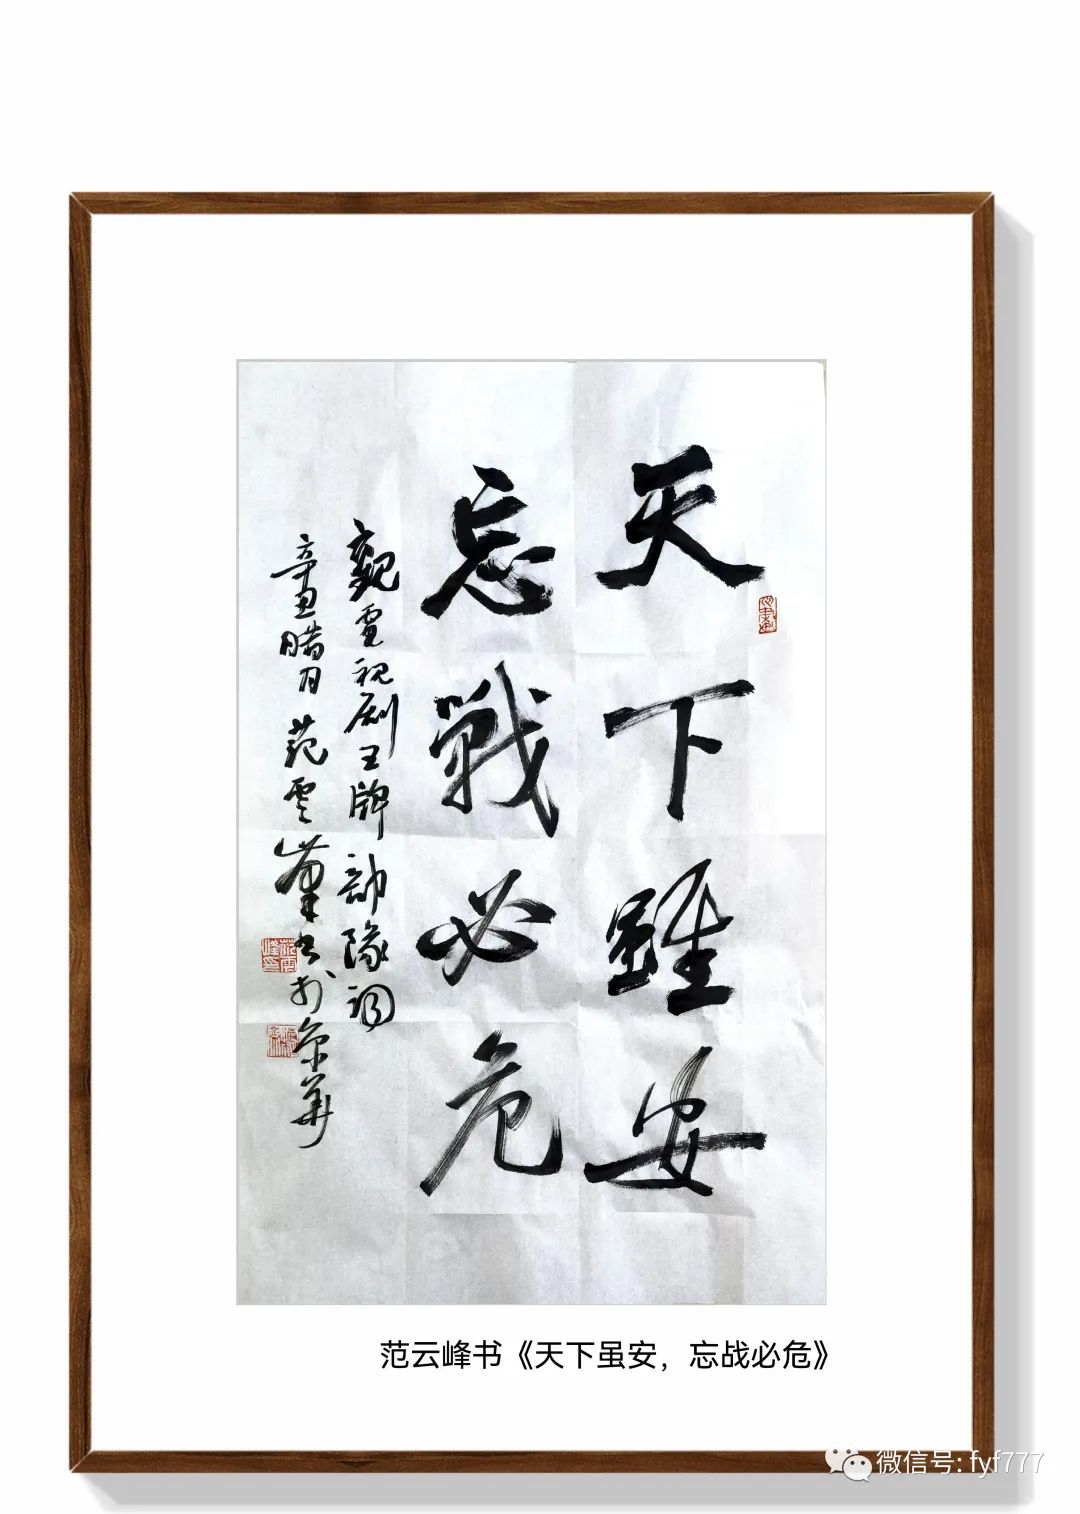 天下雖安
忘戰必危
觀電視劇王牌部隊詞
辛丑腊月范雲峰书於京華
范云峰书《天下虽安，忘战必危》
微信号: fyf777